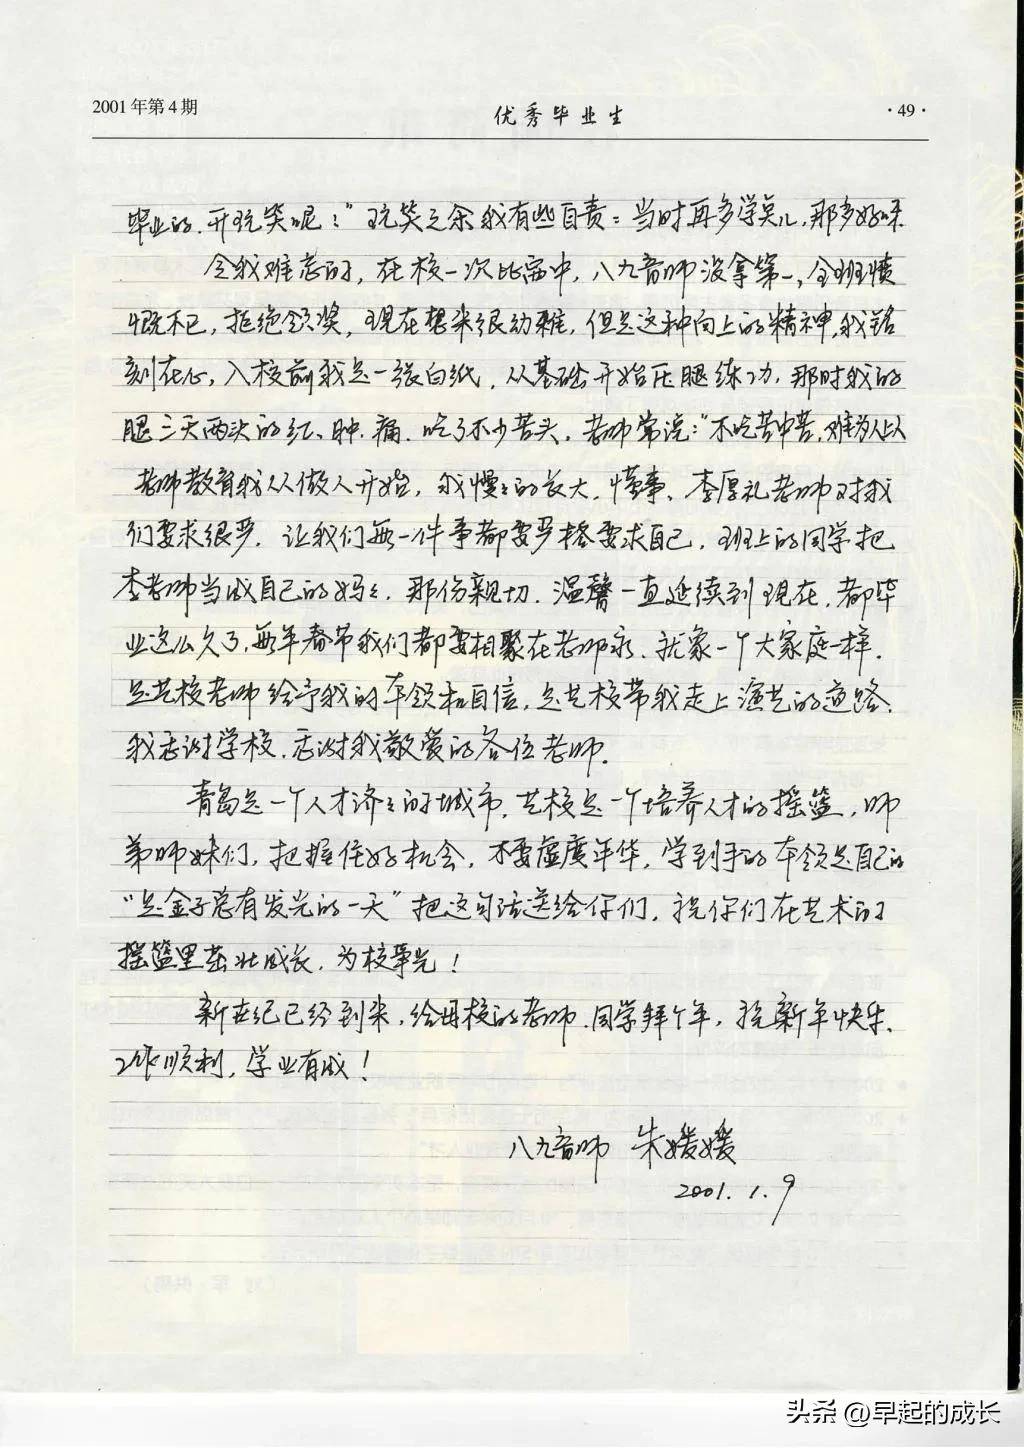 2001年第4期
优秀毕业生
·49·
毕业的.开玩笑呢！”玩笑之余我有些自责：当时再多学点儿,那多好呀.
令我难忘的,在校一次比赛中,八九音师没拿第一,全班愤
慨不已,拒绝领奖,现在想来很幼稚,但是这种向上的精神,我铭
刻在心,入校前我是一张白纸,从基础开始压腿练功,那时我的
腿三天两头的红、肿、痛.吃了不少苦头,老师常说：“不吃苦中苦,难为人上人
老师教育我从做人开始,我慢慢的长大,懂事、李厚礼老师对我
们要求很严.让我们每一件事都要严格要求自己,班上的同学把
李老师当成自己的妈妈,那份亲切.温馨一直延续到现在,都毕
业这么久了,每年春节我们都要相聚在老师家、就象一个大家庭一样.
是艺校老师给予我的本领和自信,是艺校带我走上演艺的道路.
我感谢学校.感谢我敬爱的各位老师.
青岛是一个人才济济的城市,艺校是一个培养人才的摇篮,师
弟师妹们,把握住好机会,不要虚度年华,学到手的本领是自己的
“是金子总有发光的一天”把这句话送给你们,祝你们在艺术的
摇篮里茁壮成长,为校争光！
新世纪已经到来,给母校的老师.同学拜个年,祝新年快乐、
工作顺利,学业有成！
八九音师 朱媛媛
2001.1.9
头条 @早起的成长